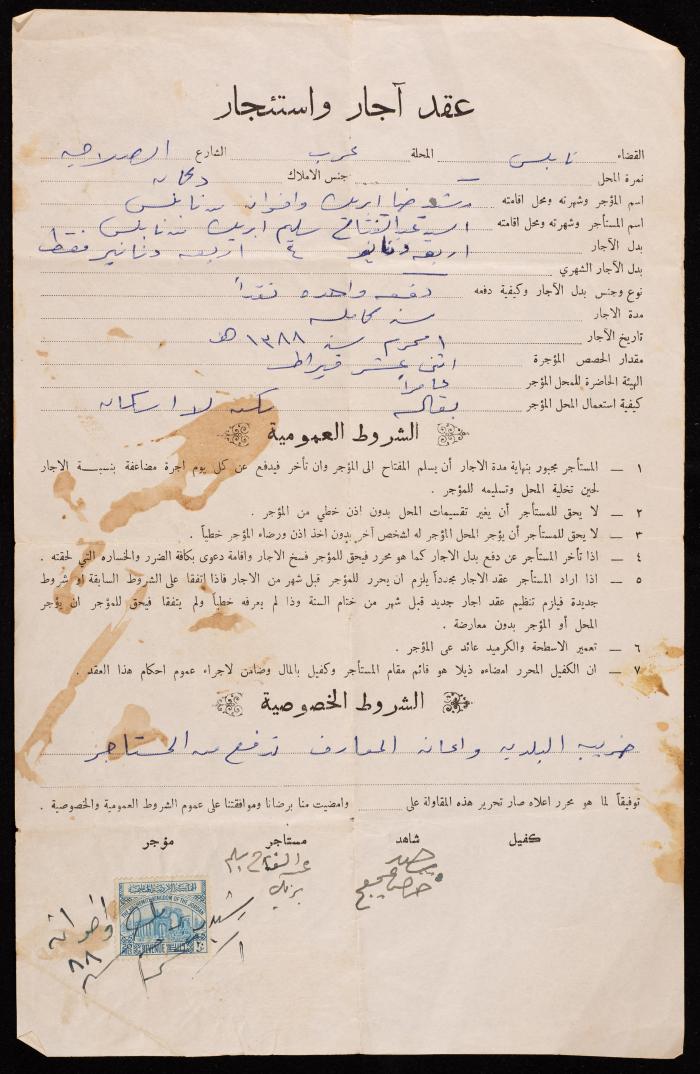 عقد آجار واستئجار
القضاء نابلس المحلة غرب الشارع الصلاحيه
نمرة المحل — جنس الاملاك دكانه
اسم المؤجر وشهرته ومحل اقامته رشيد رضا ابريك واخوانه من نابلس
اسم المستأجر وشهرته ومحل اقامته السيد عبد الفتاح سليم ابريك من نابلس
بدل الآجار اربعه دنانير ٤ اربعه دنانير فقط
بدل الآجار الشهري —
نوع وجنس بدل الآجار وكيفية دفعه دفعه واحده نقداً
مدة الاجار سنه كامله
تاريخ الآجار ١ محرم سنه ١٣٨٨ هـ
مقدار الحصص المؤجرة اثني عشر قيراط
الهيئة الحاضرة للمحل المؤجر عامراً
كيفية استعمال المحل المؤجر بقاله
الشروط العمومية
١ — المستأجر مجبور بنهاية مدة الاجار أن يسلم المفتاح الى المؤجر وان تأخر فيدفع عن كل يوم اجرة مضاعفة بنسبة الاجار
لحين تخلية المحل وتسليمه للمؤجر .
٢ — لا يحق للمستأجر أن يغير تقسيمات المحل بدون اذن خطي من المؤجر .
٣ — لا يحق للمستأجر أن يؤجر المحل المؤجر له لشخص آخر بدون اخذ اذن ورضاء المؤجر خطياً .
٤ — اذا تأخر المستأجر عن دفع بدل الاجار كما هو محرر فيحق للمؤجر فسخ الاجار واقامة دعوى بكافة الضرر والخساره التي لحقته .
٥ — اذا اراد المستأجر عقد الاجار مجدداً يلزم ان يحرر للمؤجر قبل شهر من الاجار فاذا اتفقا على الشروط السابقة او شروط
جديدة فيلزم تنظيم عقد اجار جديد قبل شهر من ختام السنة وذا لم يعرفه خطياً ولم يتفقا فيحق للمؤجر ان يؤجر
المحل أو المؤجر بدون معارضة .
٦ — تعمير الاسطحة والكرميد عائد عى المؤجر .
٧ — ان الكفيل المحرر امضاءه ذيلا هو قائم مقام المستأجر وكفيل بالمال وضامن لاجراء عموم احكام هذا العقد .
الشروط الخصوصية
ضريبه البلديه واعانة المعارف تدفع من المستاجر
توفيقاً لما هو محرر اعلاه صار تحرير هذه المقاولة على وامضيت منا برضانا وموافقتنا على عموم الشروط العمومية والخصوصية .
كفيل شاهد مستاجر مؤجر
عبد الفتاح سليم
بريك
THE HASHEMITE KINGDOM OF THE JORDAN
REVENUE
واخوانه
٨٨